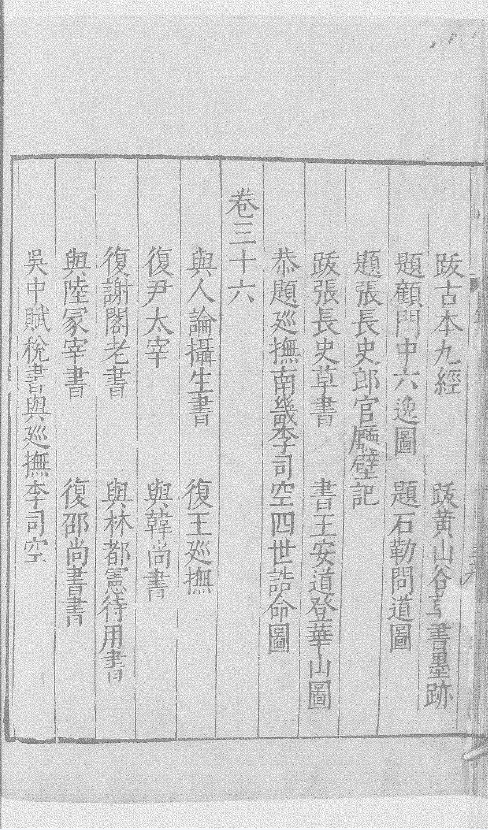 跋古本九經　跋黃山谷草書墨跡
題顧閎中六逸圖　題石勒問道圖
題張長史郎官廳壁記
跋張長史草書　書王安道登華山圖
恭題巡撫南畿李司空四世誥命圖
卷三十六
與人論攝生書　復王巡撫
復尹太宰　與韓尚書
復謝閣老書　與林都憲待用書
與陸冢宰書　復邵尚書書
吳中賦稅書與巡撫李司空